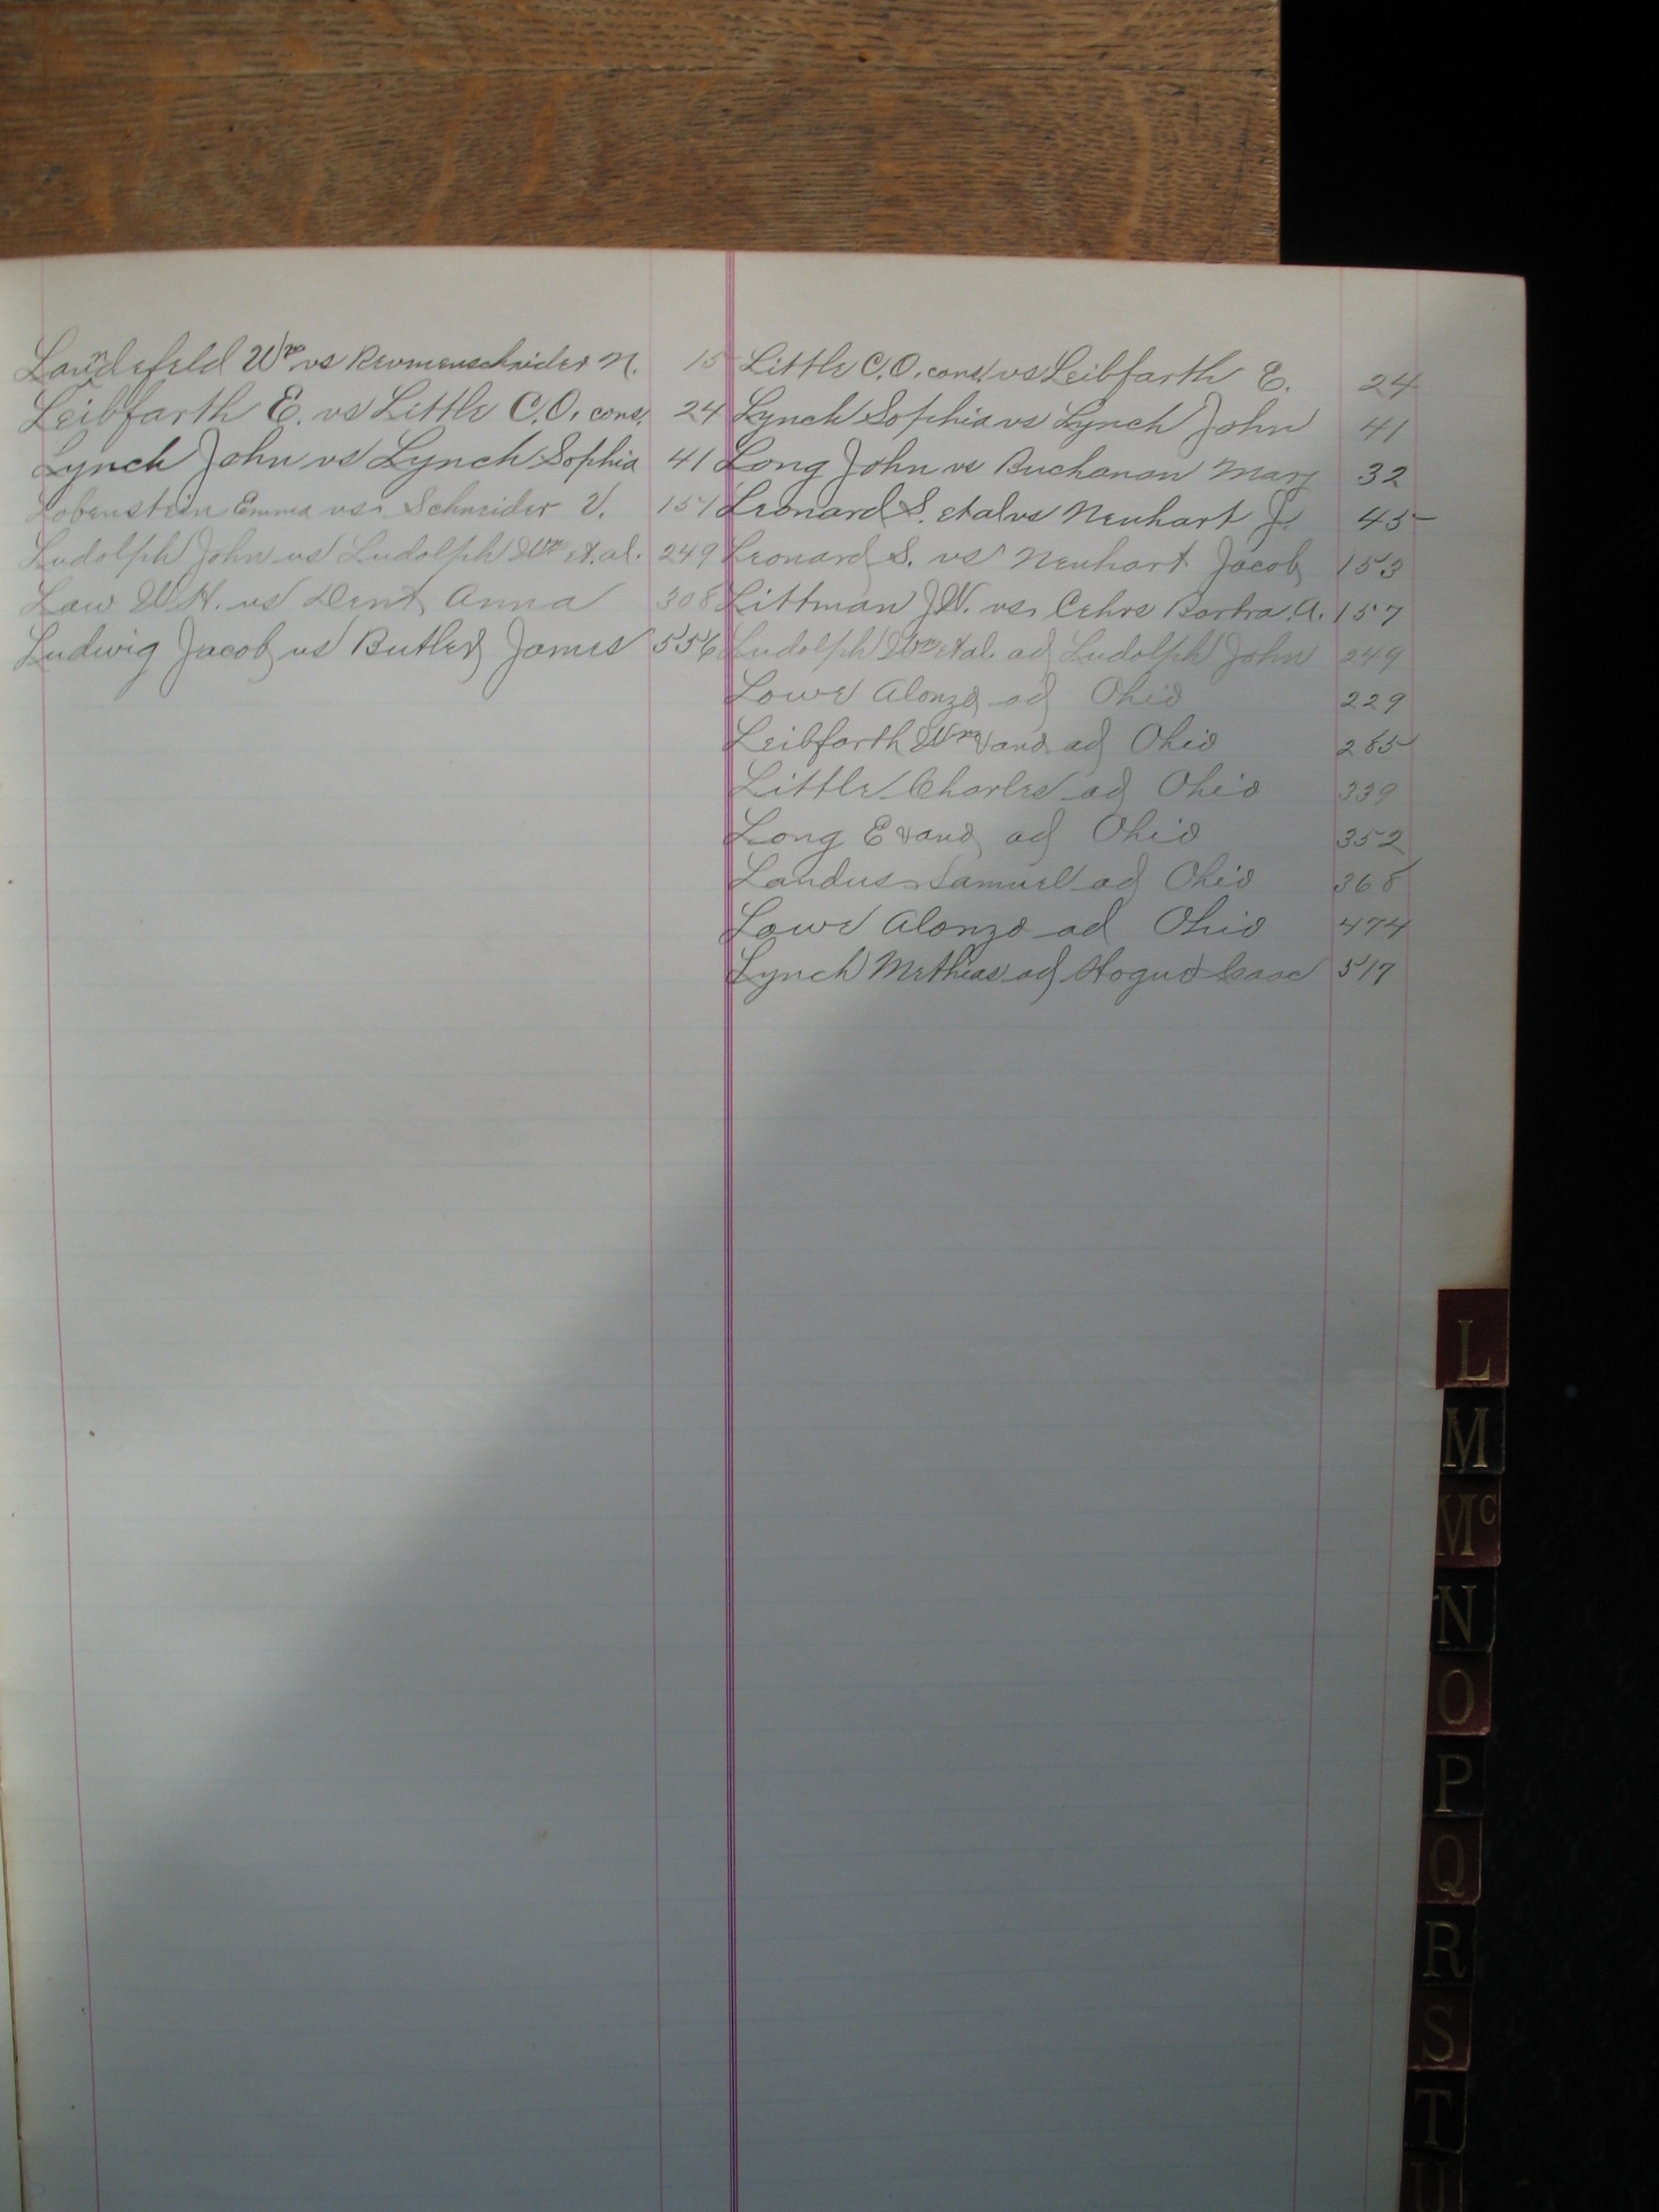 Landefeld Wm vs Reumenschneider N. 15
Leibfarth E. vs Little C.O. cons. 24
Lynch John vs Lynch Sophia 41
Lobenstein Emma vs. Schneider V. 151
Ludolph John vs Ludolph Wm et.al. 249
Law W.H. vs Dent Anna 308
Ludwig Jacob vs Butler James 556
Little C.O. cons. vs Leibfarth E. 24
Lynch Sophia vs Lynch John 41
Long John vs Buchanan Mary 32
Leonard S. et al vs Neuhart J. 45
Leonard S. vs Neuhart Jacob 153
Littman J.W. vs. Cehrs Barbra A. 157
Ludolph Wm et al. ad Ludolph John 249
Lowe Alonzo ad Ohio 229
Leibfarth Wm ad Ohio 285
Little Charles ad Ohio 339
Long E ad Ohio 352
Landus Samuel ad Ohio 368
Lowe Alonzo ad Ohio 474
Lynch Methias ad Hogue Isaac 517
L
M
Mc
N
O
P
Q
R
S
T
U